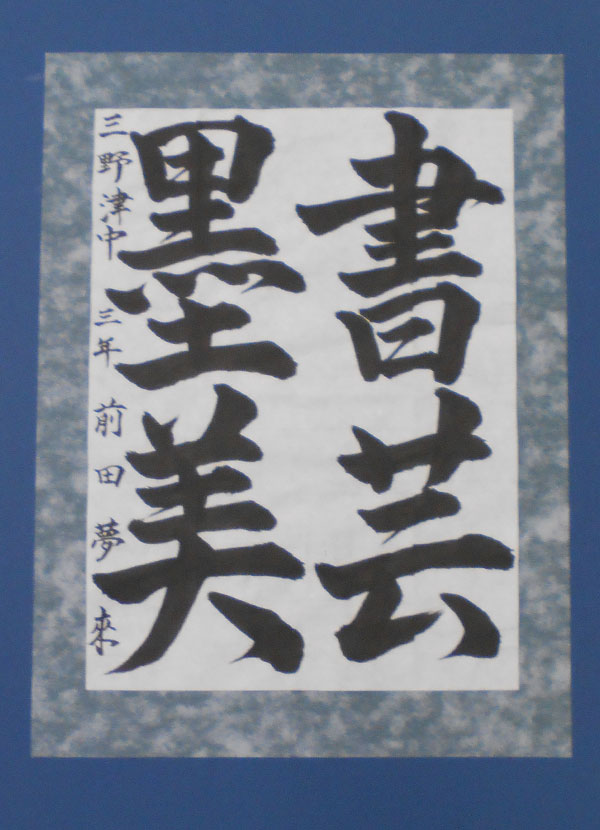 書芸
墨美
三野津中 三年 前田夢來